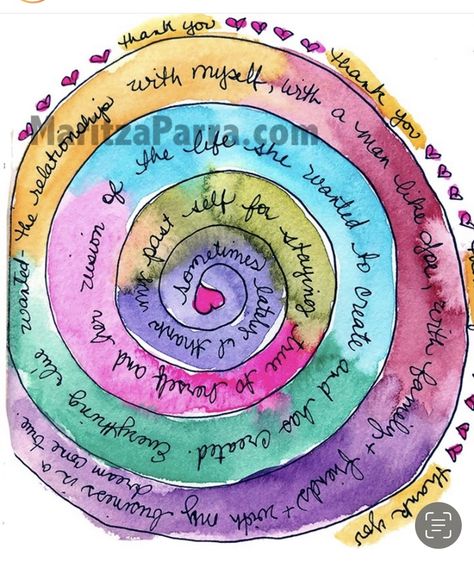 thank you
thank you
thank you
MaritzaParra.com
sometimes lately I thank my past self for staying true to herself and her vision of the life she wanted to create and has created. Everything I've wanted - the relationships with myself, with a man like Joe, with family + friends + with my business is a dream come true.